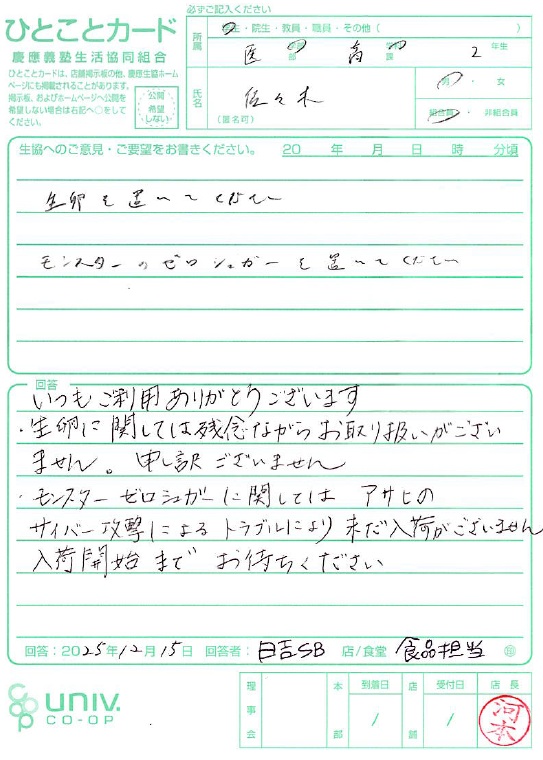 ひとことカード
慶應義塾生活協同組合
ひとことカードは、店舗掲示板の他、慶應生協ホーム
ページにも掲載されることがあります。
掲示板、およびホームページへ公開を
希望しない場合は右記へ○をして
ください。
公開
希望
しない
必ずご記入ください
所属
学生・院生・教員・職員・その他(
医 部 課 2 年生
氏名
佐々木
(匿名可)
男・女
組合員・非組合員
生協へのご意見・ご要望をお書きください。 20 年 月 日 時 分頃
生卵を置いてください
モンスターのゼロシュガーを置いてください
回答
いつもご利用ありがとうございます
・生卵に関しては残念ながらお取り扱いがござい
ません。申し訳ございません
・モンスターゼロシュガーに関しては アサヒの
サイバー攻撃によるトラブルにより未だ入荷がございません
入荷開始まで お待ちください
回答:2025年12月15日 回答者:日吉SB 店/食堂 食品担当 印
UNIV.
CO-OP
理事会
本部
到着日
/
店舗
受付日
/
店長
河本